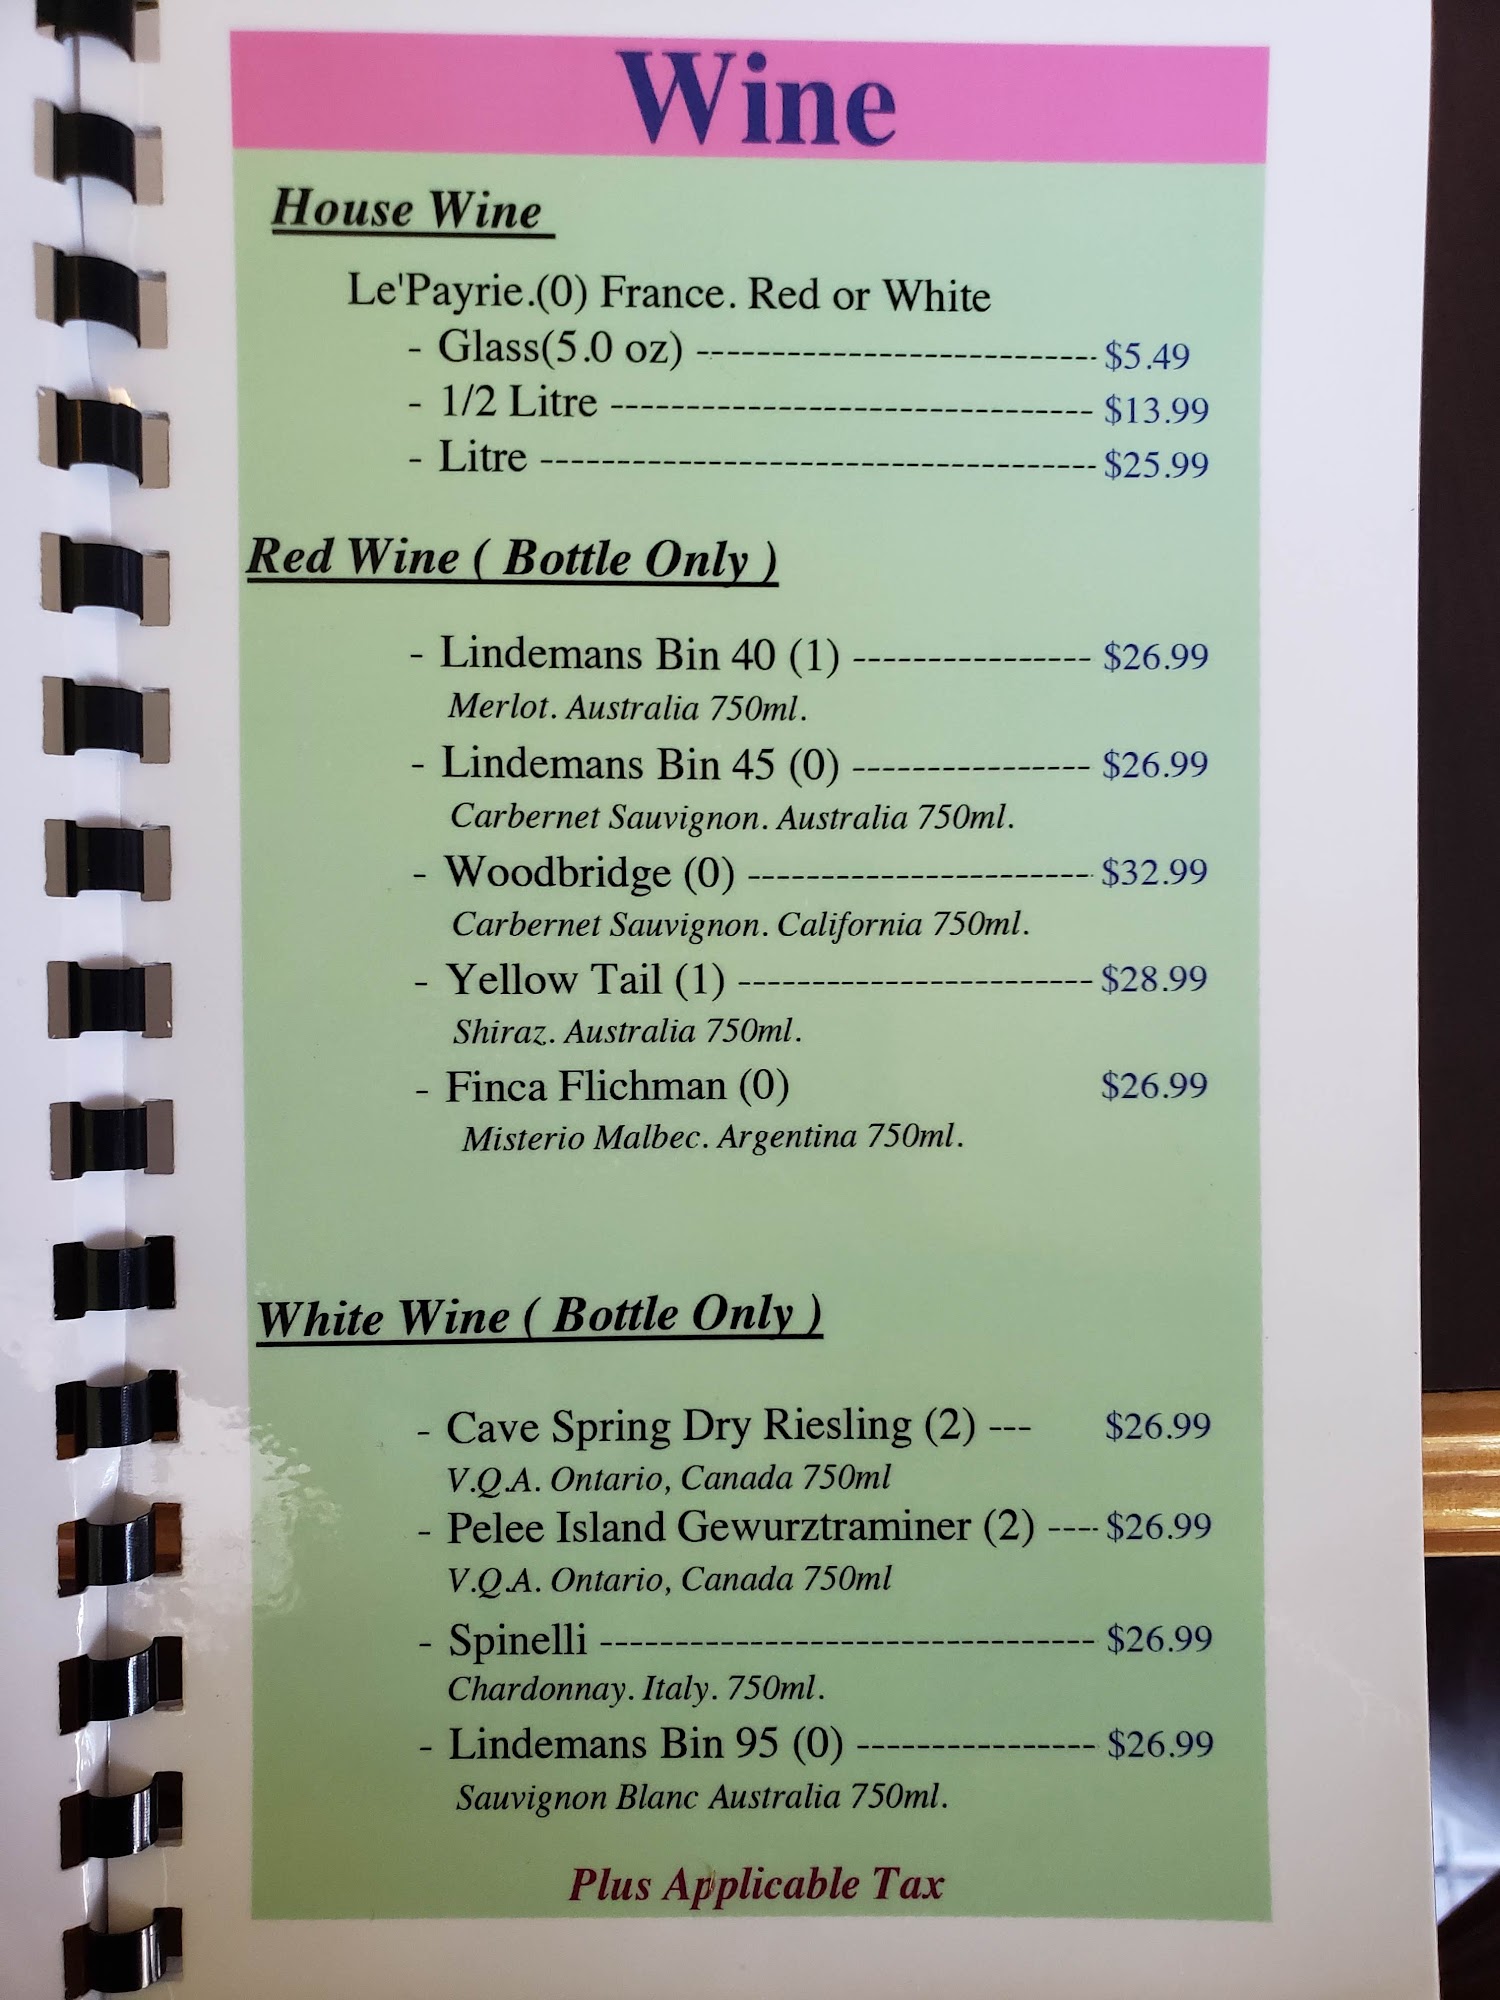 Wine
House Wine
Le'Payrie.(0) France. Red or White
- Glass(5.0 oz) --------------------------- $5.49
- 1/2 Litre -------------------------------- $13.99
- Litre ------------------------------------- $25.99
Red Wine ( Bottle Only )
- Lindemans Bin 40 (1) ---------------- $26.99
Merlot. Australia 750ml.
- Lindemans Bin 45 (0) ---------------- $26.99
Carbernet Sauvignon. Australia 750ml.
- Woodbridge (0) ----------------------- $32.99
Carbernet Sauvignon. California 750ml.
- Yellow Tail (1) ------------------------ $28.99
Shiraz. Australia 750ml.
- Finca Flichman (0) $26.99
Misterio Malbec. Argentina 750ml.
White Wine ( Bottle Only )
- Cave Spring Dry Riesling (2) --- $26.99
V.Q.A. Ontario, Canada 750ml
- Pelee Island Gewurztraminer (2) ---- $26.99
V.Q.A. Ontario, Canada 750ml
- Spinelli --------------------------------- $26.99
Chardonnay. Italy. 750ml.
- Lindemans Bin 95 (0) ---------------- $26.99
Sauvignon Blanc Australia 750ml.
Plus Applicable Tax